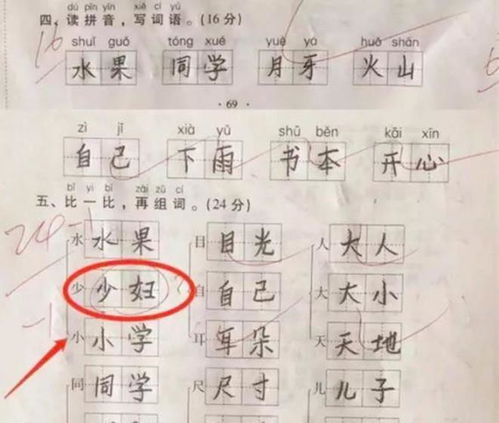 dú pīn yīn xiě cí yǔ
四、读拼音，写词语。(16分)
16
shuǐ guǒ tóng xué yuè yá huǒ shān
水果 同学 月牙 火山
·69·
zì jǐ xià yǔ shū běn kāi xīn
自己 下雨 书本 开心
bǐ yì bǐ zài zǔ cí
五、比一比，再组词。(24分)
24-1
水 水果 目 目光 人 大人
少 少妇 自 自己 大 大小
-1
小 小学 耳 耳朵 天 天地
同 同学 尺 尺寸 儿 儿子